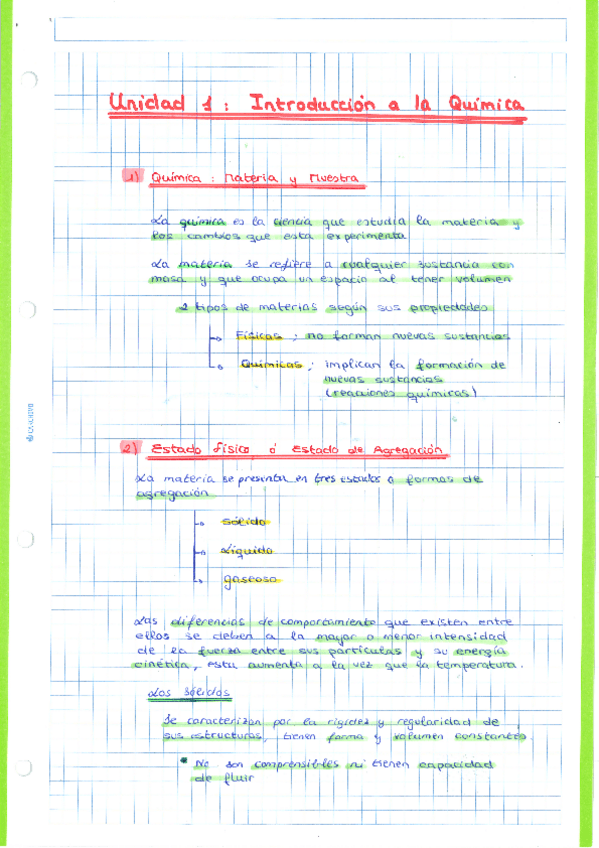 Unidad 1: Introducción a la Química
1) Química: Materia y Muestra
La química es la ciencia que estudia la materia y
los cambios que esta experimenta
La materia se refiere a cualquier sustancia con
masa y que ocupa un espacio al tener volumen
2 tipos de materias según sus propiedades
Físicas; no forman nuevas sustancias
Químicas; implican la formación de
nuevas sustancias
(reacciones químicas)
2) Estado físico ó Estado de Agregación
La materia se presenta en tres estados o formas de
agregación
sólido
líquido
gaseoso
Las diferencias de comportamiento que existen entre
ellos se deben a la mayor o menor intensidad
de la fuerza entre sus partículas y su energía
cinética, esta aumenta a la vez que la temperatura.
Los sólidos
Se caracterizan por la rigidez y regularidad de
sus estructuras, tienen forma y volumen constantes.
* No son comprensibles ni tienen capacidad
de fluir